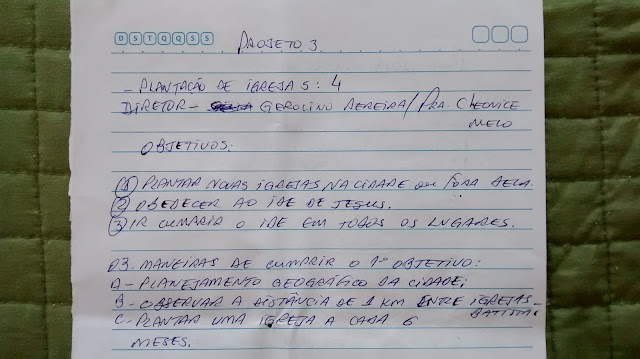 D S T Q Q S S
PROJETO 3
- PLANTAÇÃO DE IGREJAS: 4
DIRETOR - GEROLINO PEREIRA / PRA. CLEONICE
MELO
OBJETIVOS:
① PLANTAR NOVAS IGREJAS NA CIDADE OU FORA DELA.
② OBEDECER AO IDE DE JESUS.
③ IR CUMPRIR O IDE EM TODOS OS LUGARES.
03. MANEIRAS DE CUMPRIR O 1º OBJETIVO:
A - PLANEJAMENTO GEOGRÁFICO DA CIDADE;
B - OBSERVAR A DISTÂNCIA DE 1 KM ENTRE IGREJAS
BATISTAS
C. PLANTAR UMA IGREJA A CADA 6
MESES.